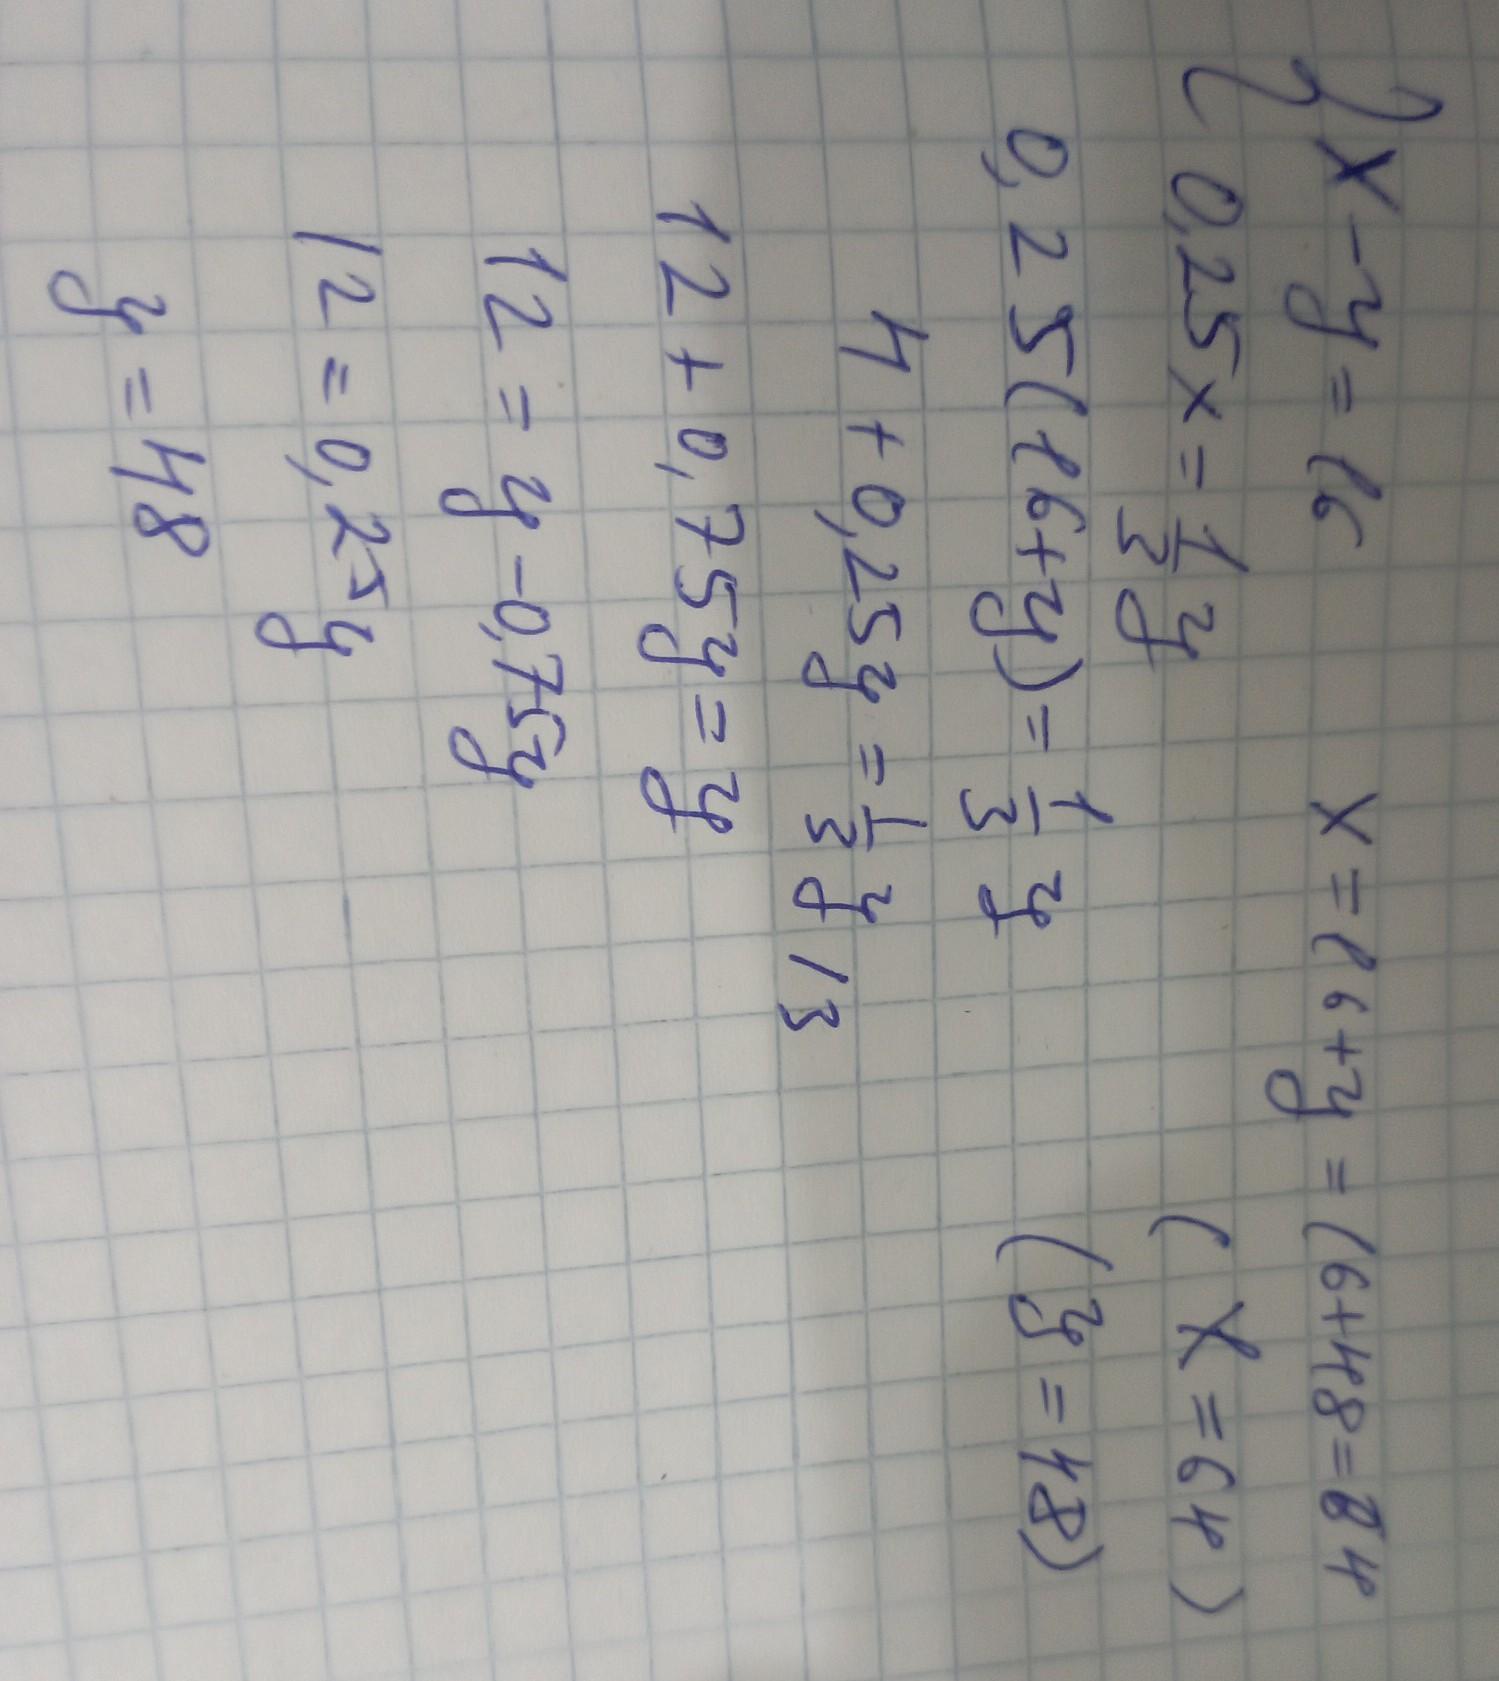 { x - y = 16
0,25x = 1/3 y
0,25(16+y) = 1/3 y
4 + 0,25y = 1/3 y /3
12 + 0,75y = y
12 = y - 0,75y
12 = 0,25y
y = 48
x = 16+y = 16+48 = 64
( x = 64 )
( y = 48)